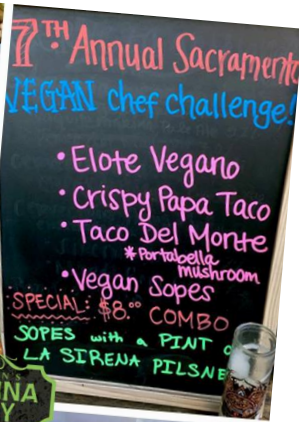 7TH Annual Sacramento
VEGAN chef challenge!
• Elote Vegano
• Crispy Papa Taco
• Taco Del Monte
*Portabella
mushroom
• Vegan Sopes
SPECIAL: $8.00 COMBO
SOPES with a PINT
LA SIRENA PILSNE
NA
Y